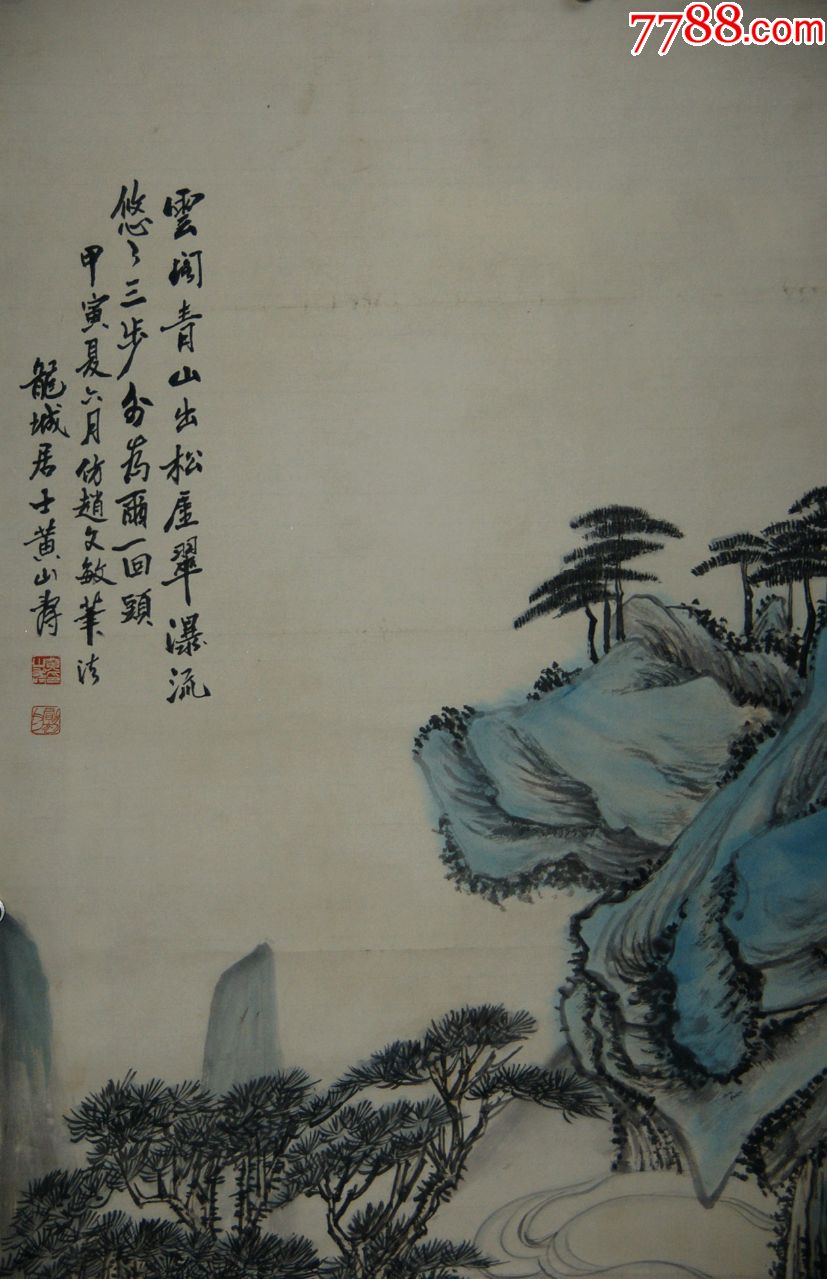 7788.com
雲闲青山出松崖翠瀑流
悠〻三步外為爾一回頭
甲寅夏六月仿趙文敏筆法
龍城居士黃山壽